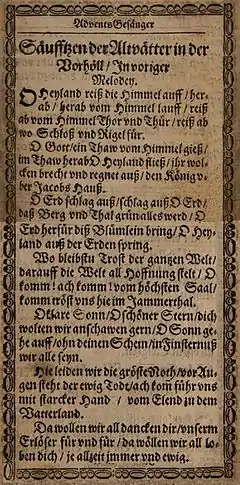 Advents Gesänger
Säufftzen der Altvätter in der
Vorhöll / In voriger
Melodey.
O Heyland reiß die Himmel auff / her-
ab / herab vom Himmel lauff / reiß
ab vom Himmel Thor vnd Thür / reiß ab
wo Schloß vnd Rigel für.
O Gott / ein Thaw vom Himmel gieß /
im Thaw herab O Heyland fließ / jhr wol-
cken brecht vnd regnet auß / den König v-
ber Jacobs Hauß.
O Erd schlag auß / schlag auß O Erd /
daß Berg vnd Thal grün alles werd / O
Erd herfür diß Blümlein bring / O Hey-
land auß der Erden spring.
Wo bleibstu Trost der gantzen Welt /
darauff die Welt all Hoffnung stelt / O
komm / ach komm / vom höchsten Saal /
komm tröst vns hie im Jammerthal.
O klare Sonn / O schöner Stern / dich
wolten wir anschawen gern / O Sonn ge-
he auff / ohn deinen Schein / in Finsternuß
wir alle seyn.
Hie leiden wir die gröste Noth / vor Au-
gen steht der ewig Todt / ach kom führ vns
mit starcker Hand / vom Elend zu dem
Vatterland.
Da wollen wir all dancken dir / vnserm
Erlöser für vnd für / da wöllen wir all lo-
ben dich / je allzeit jmmer vnd ewig.